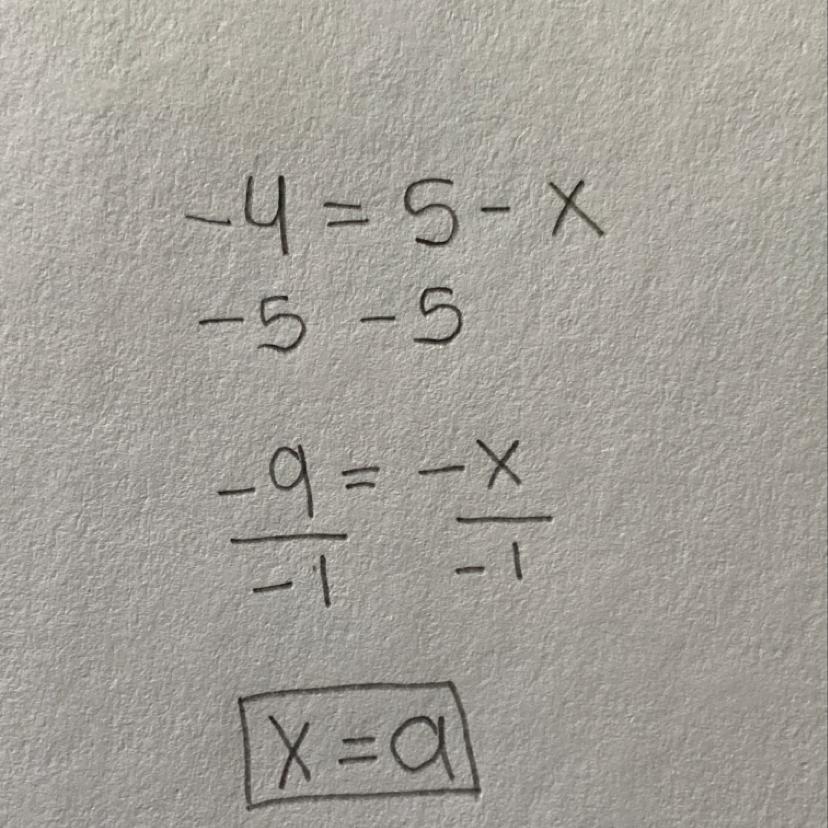 -4 = 5 - x
-5 -5
-9 = -x
-1 -1
x = 9